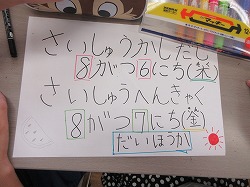 さいしゅうかしだし
8がつ6にち
さいしゅうへんきゃく
8がつ7にち(金)
だいほうか